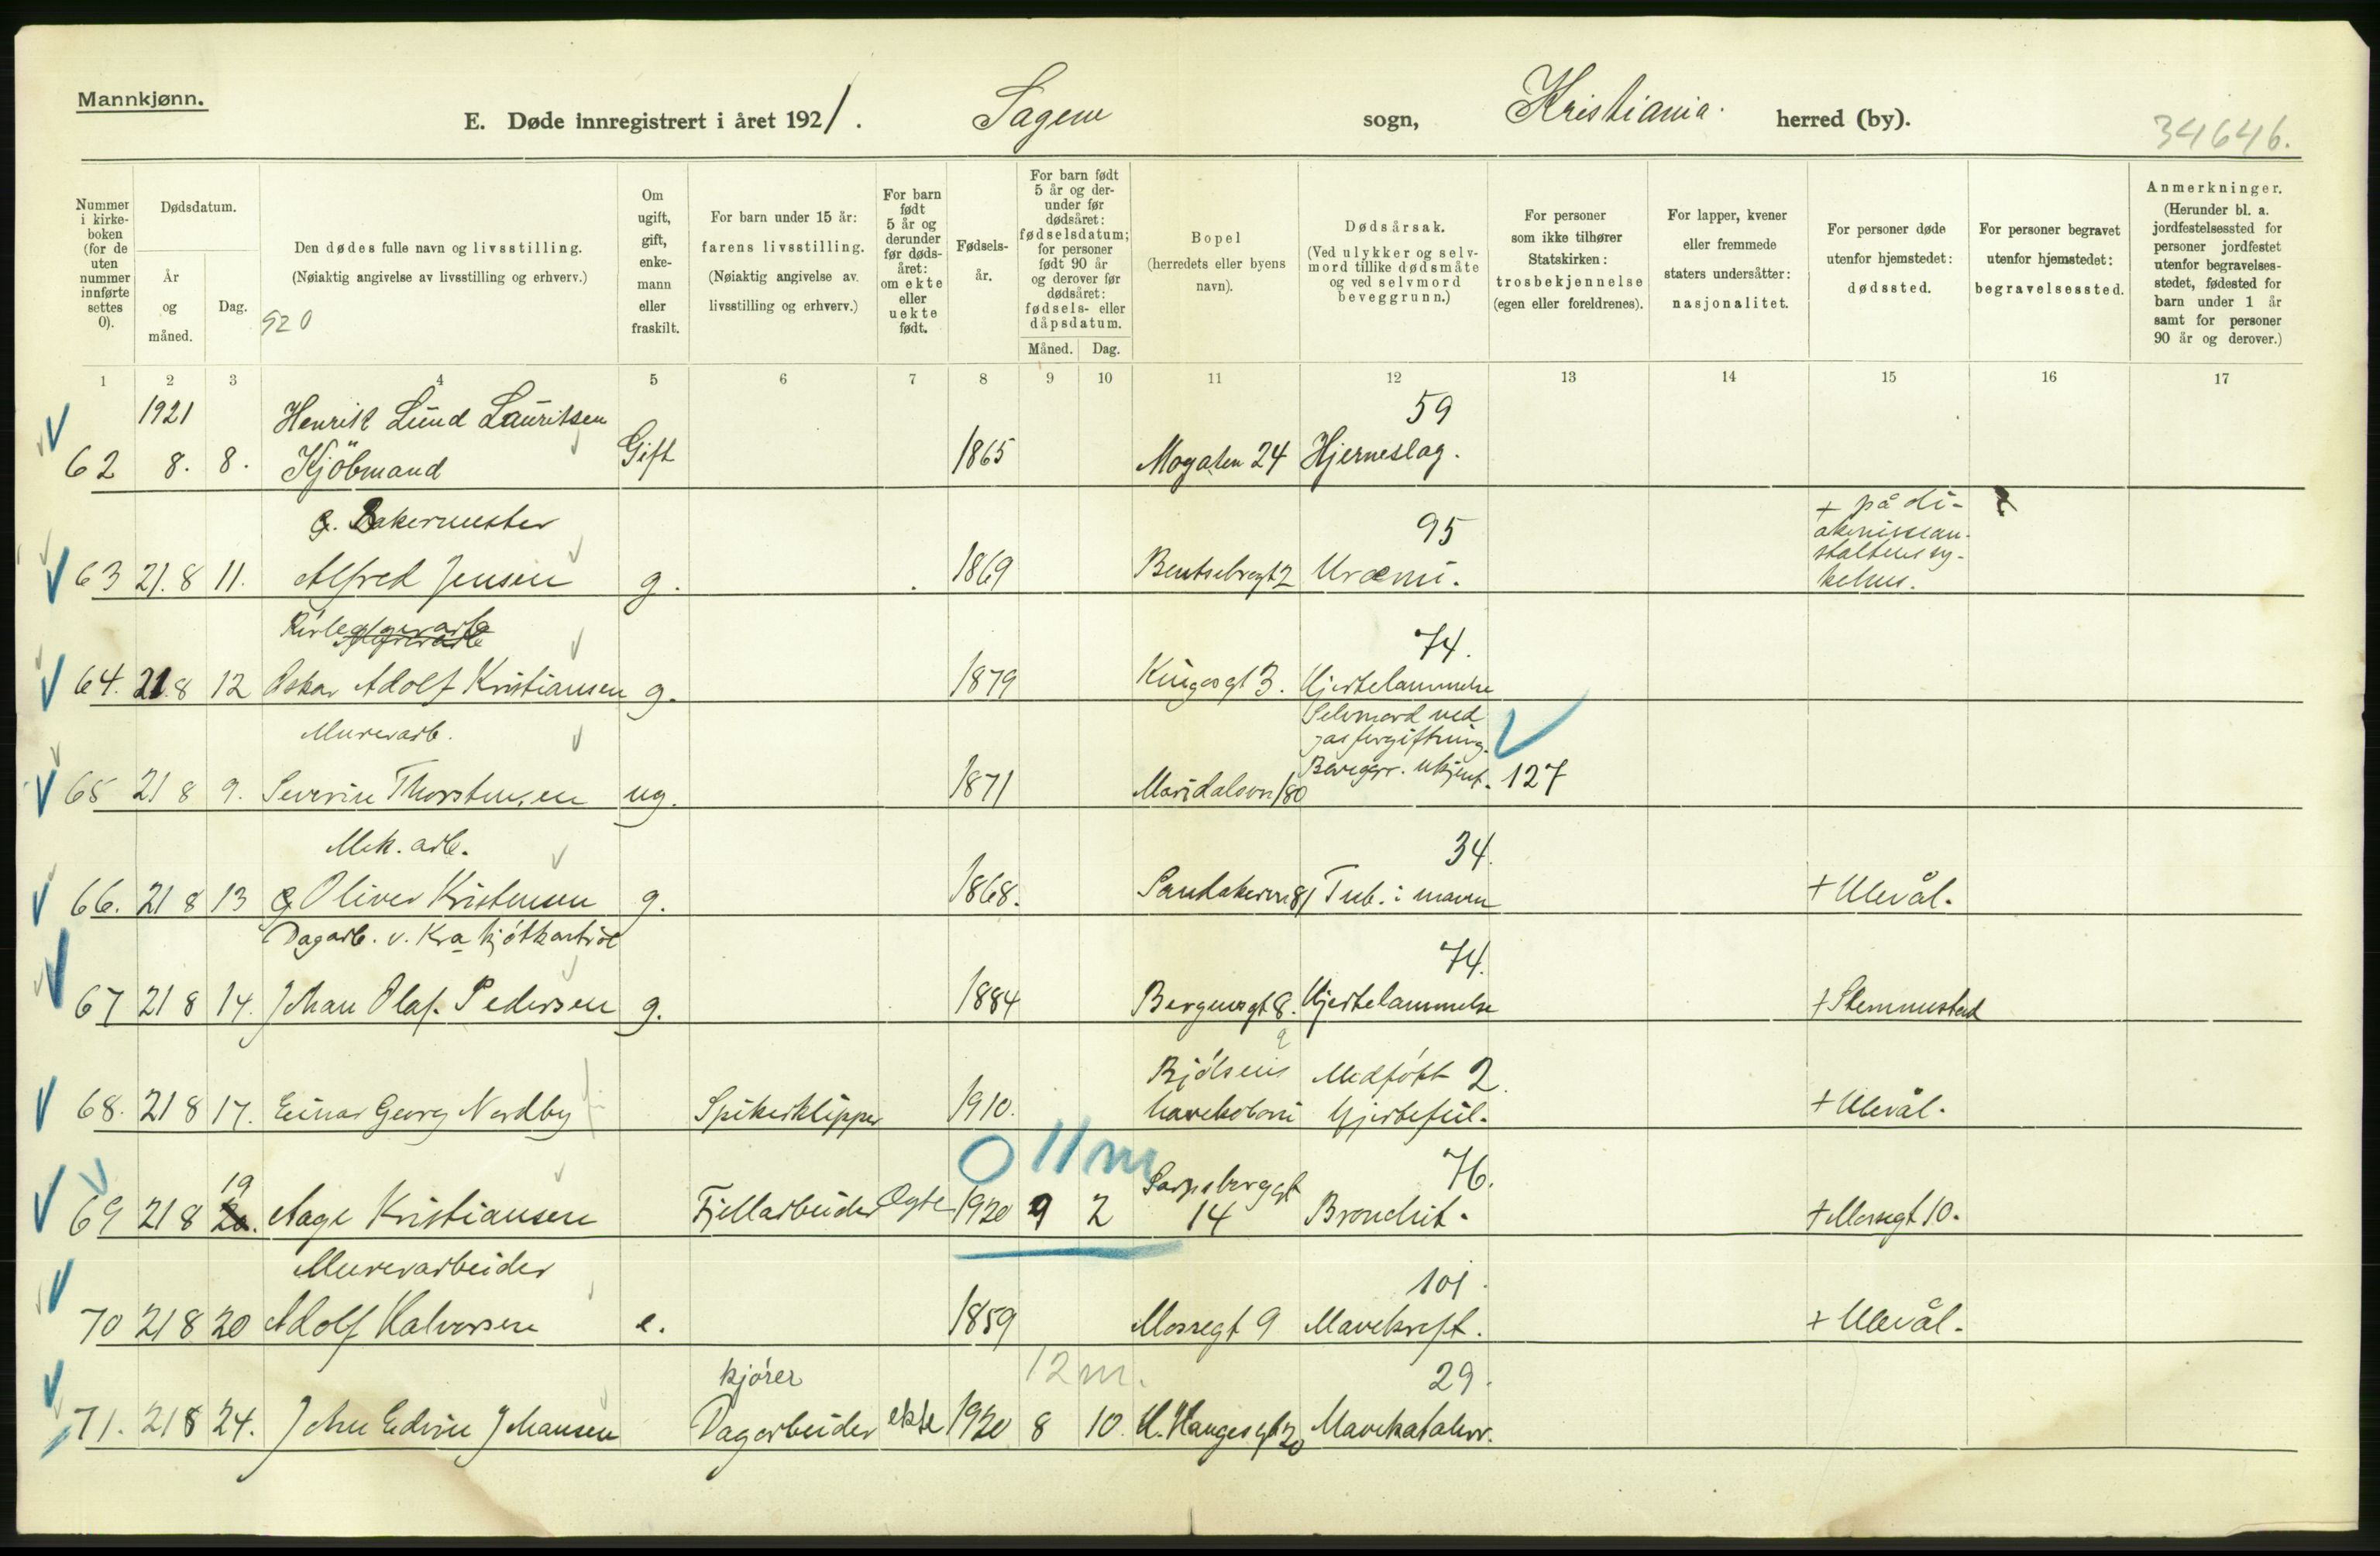 Mannkjønn.
E. Døde innregistrert i året 1921. Sagene sogn, Kristiania. herred (by).
34646.
Nummer i kirke-boken (for de uten nummer innførte settes 0).
Dødsdatum.
År og måned.
Dag.
Den dødes fulle navn og livsstilling.
(Nøiaktig angivelse av livsstilling og erhverv.)
920
Om ugift, gift, enke-mann eller fraskilt.
For barn under 15 år:
farens livsstilling.
(Nøiaktig angivelse av.
livsstilling og erhverv.)
For barn født 5 år og derunder før døds-året: om ekte eller uekte født.
Fødsels-år.
For barn født 5 år og der-under før dødsåret: fødselsdatum; for personer født 90 år og derover før dødsåret: fødsels- eller dåpsdatum.
Måned. Dag.
Bopel
(herredets eller byens navn).
Dødsårsak.
(Ved ulykker og selv-mord tillike dødsmåte og ved selvmord beveggrunn.)
For personer som ikke tilhører Statskirken: trosbekjennelse (egen eller foreldrenes).
For lapper, kvener eller fremmede staters undersåtter: nasjonalitet.
For personer døde utenfor hjemstedet: dødssted.
For personer begravet utenfor hjemstedet: begravelsessted.
Anmerkninger.
(Herunder bl. a. jordfestelsessted for personer jordfestet utenfor begravelses-stedet, fødested for barn under 1 år samt for personer 90 år og derover.)
1 2 3 4 5 6 7 8 9 10 11 12 13 14 15 16 17
1921 Henrik Lund Lauritsen 59
62 8. 8. Kjöbmand Gift 1865 Mogaten 24 Hjerneslag.
Bakermester 95 + på di-
akonissean-
staltens sy-
63 21.8 11. Alfred Jensen g. 1869 Bentsebrogt 2 Uræmi. kehus.
74.
64. 21.8 12 Oskar Adolf Kristiansen g. 1879 Kingosgt 3. Hjertelammelse
Murerarb. Selvmord ved
gasforgiftning.
65 21 8 9. Severin Thorstensen ug. 1871 Maridalsvn 180 Beveggr. ukjent. 127
Mek. arb. 34.
66. 21 8 13 Oliver Kristensen g. 1868. Sandakervn 81 Tub. i maven + Ulevål.
Dagarb. v. Kra kjøtkontrol 74.
67 21 8 14. Johan Olaf Pedersen g. 1884 Bergensgt 8. Hjertelammelse + Slemmestad
Bjölsens Medføtt 2
68. 21 8 17. Einar Georg Nordby Spikerklipper 1910. havekoloni Hjertefeil. + Ulevål.
0 11 m
19 Sarpsborggt 76.
69 21 8 20. Aage Kristiansen Fjellarbeider Ægte 1920 9 2 14 Bronchit. + Mossegt 10.
Murerarbeider 101.
70 21 8 20 Adolf Halvorsen e. 1859 Mossegt 9 Mavekreft. + Ulevål.
kjører 12 m. 29.
71. 21 8 24. John Edvin Johansen Dagarbeider ekte 1920 8 10. H. Haugesgt 20 Mavekatahrr.